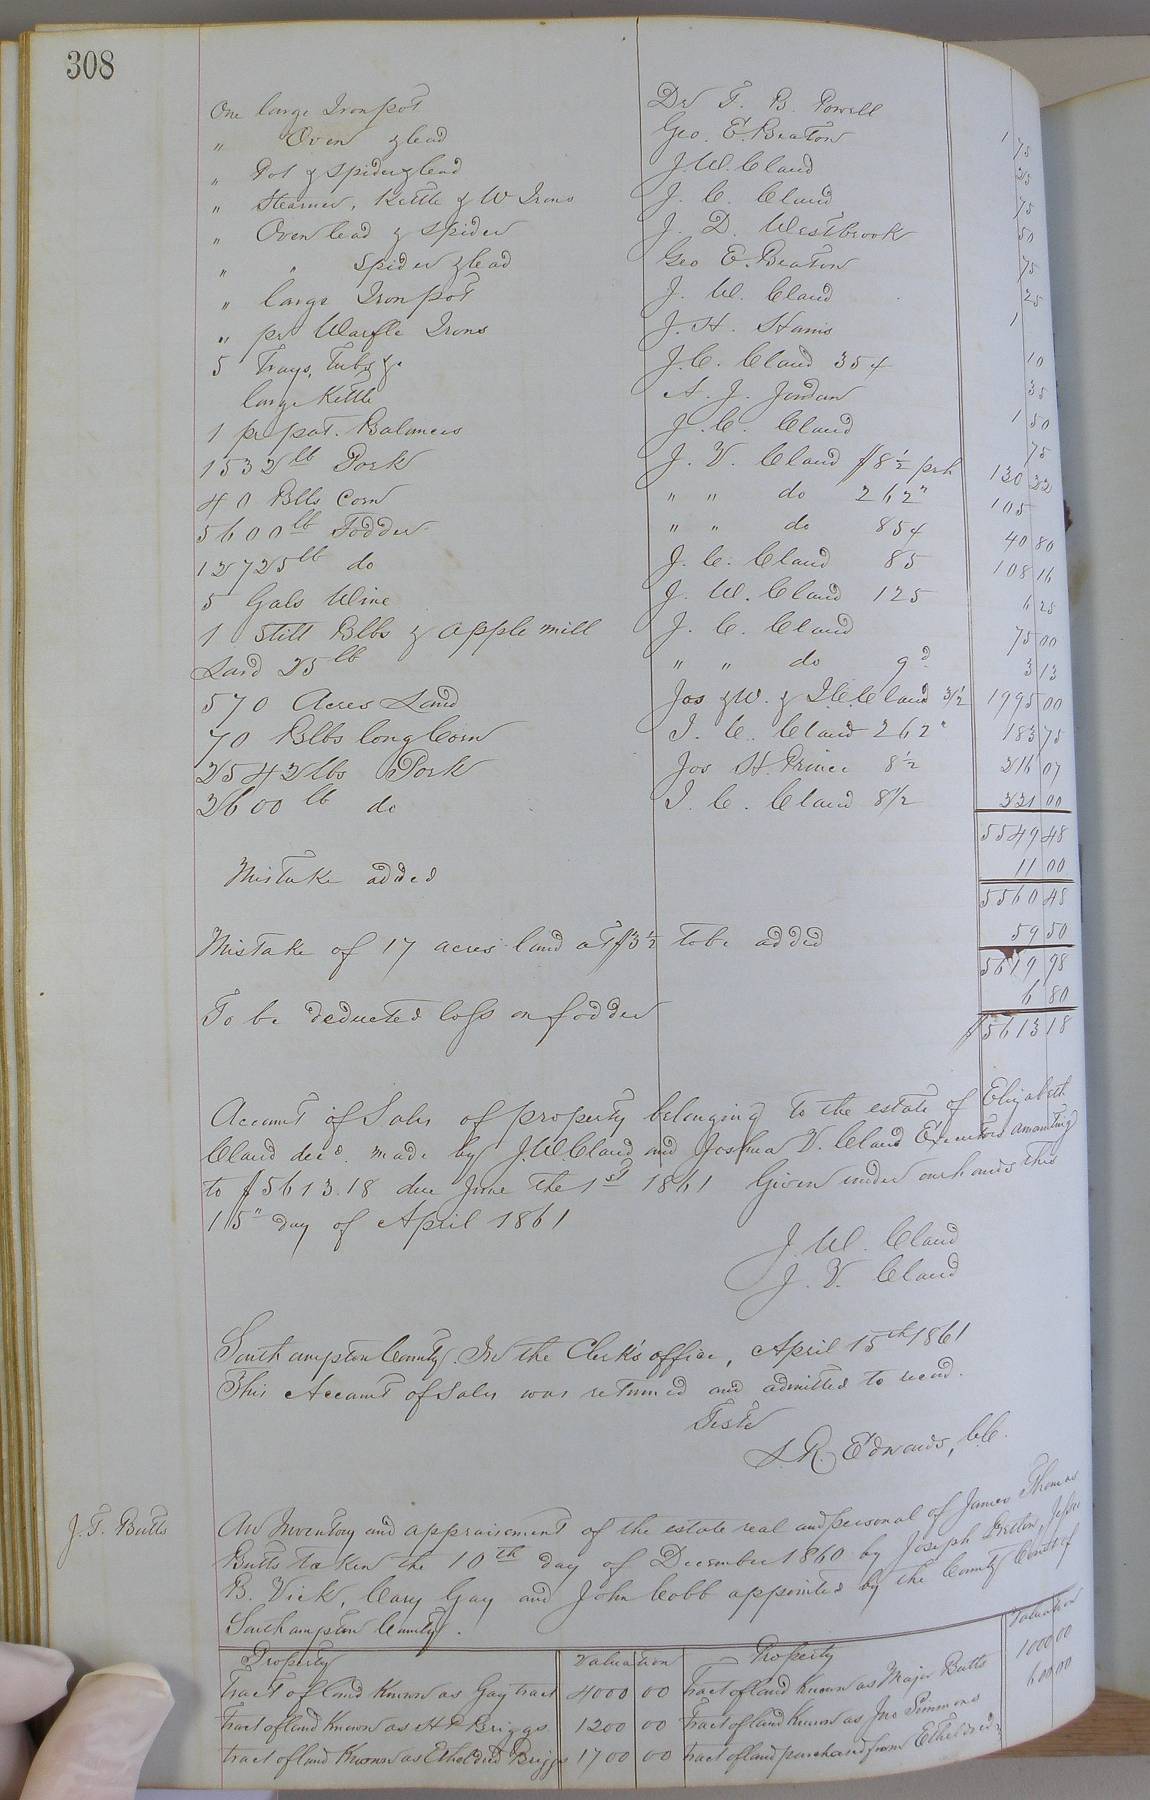 308
One large Iron pot Dr T. B. Powell 1
" Oven & lead Geo. E. Beaton 75
" Pot & Spider & lead J. W. Claud 25
" Steamer, Kettle & W Irons J. C. Claud 75
" Oven lead & Spider J. D. Westbrook 50
" " Spider & lead Geo E. Beaton 75
" large Iron pot J. W. Claud 25
" pr Waffle Irons J. H. Harris 1
5 Trays, Tubs &c J. C. Claud 35 10
large Kettle A. J. Jordan 35
1 pr pat. Balances J. C. Claud 1 50
1532 lb Pork J. V. Claud $8½ pr h 75
40 Blls Corn " " do 262" 130 22
5600 lb Fodder " " do 85 105
12725 lb do J. C. Claud 85 40 80
5 Gals Wine J. W. Claud 125 108 16
1 Still Blbs & apple mill J. C. Claud 6 25
Lard 25 lb " " do 9d 75 00
570 Acres Land Jos & W. & J. C. Claud 3½ 3 13
1995 00
70 Blbs long Corn J. C. Claud 262" 183 75
2542 lbs Pork Jos H. Prince 8½ 216 07
2600 lb do J. C. Claud 8½ 221 00
5549 48
Mistake added 11 00
5560 48
Mistake of 17 acres land at $3½ to be added 59 50
5619 98
To be deducted loss on fodder 6 80
$5613 18
Account of Sales of property belonging to the estate of Elizabeth
Claud decd. made by J. W. Claud and Joshua V. Claud Executors amounting
to $5613.18 due June the 1st 1861 Given under our hands this
15" day of April 1861
J. W. Claud
J. V. Claud
Southampton County. In the Clerk's office, April 15th 1861
This Account of Sales was returned and admitted to record.
Teste
L. R. Edwards, C.C.
J. T. Butts
An Inventory and appraisement of the estate real and personal of James Thomas
Butts taken the 10th day of December 1860 by Joseph Pretlow, Jesse
B. Vick, Cary Gay and John Cobb appointed by the County Court of
Southampton County.
Property Valuation Property Valuation
Tract of land known as Gay tract 4000 00 Tract of land known as Major Butts 1000 00
Tract of land known as H P Briggs 1200 00 Tract of land known as Jno Simmons 600 00
tract of land known as Etheldred Briggs 1700 00 tract of land purchased from Etheldred